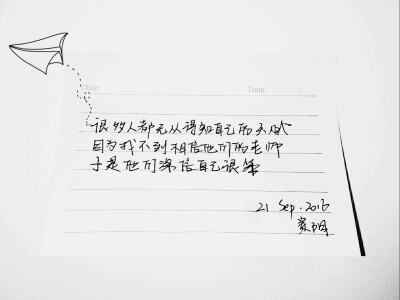 Date: Time: : :
很多人都无从得知自己的天赋
因为找不到相信他们的老师
于是他们深信自己很笨
21 Sep. 2016